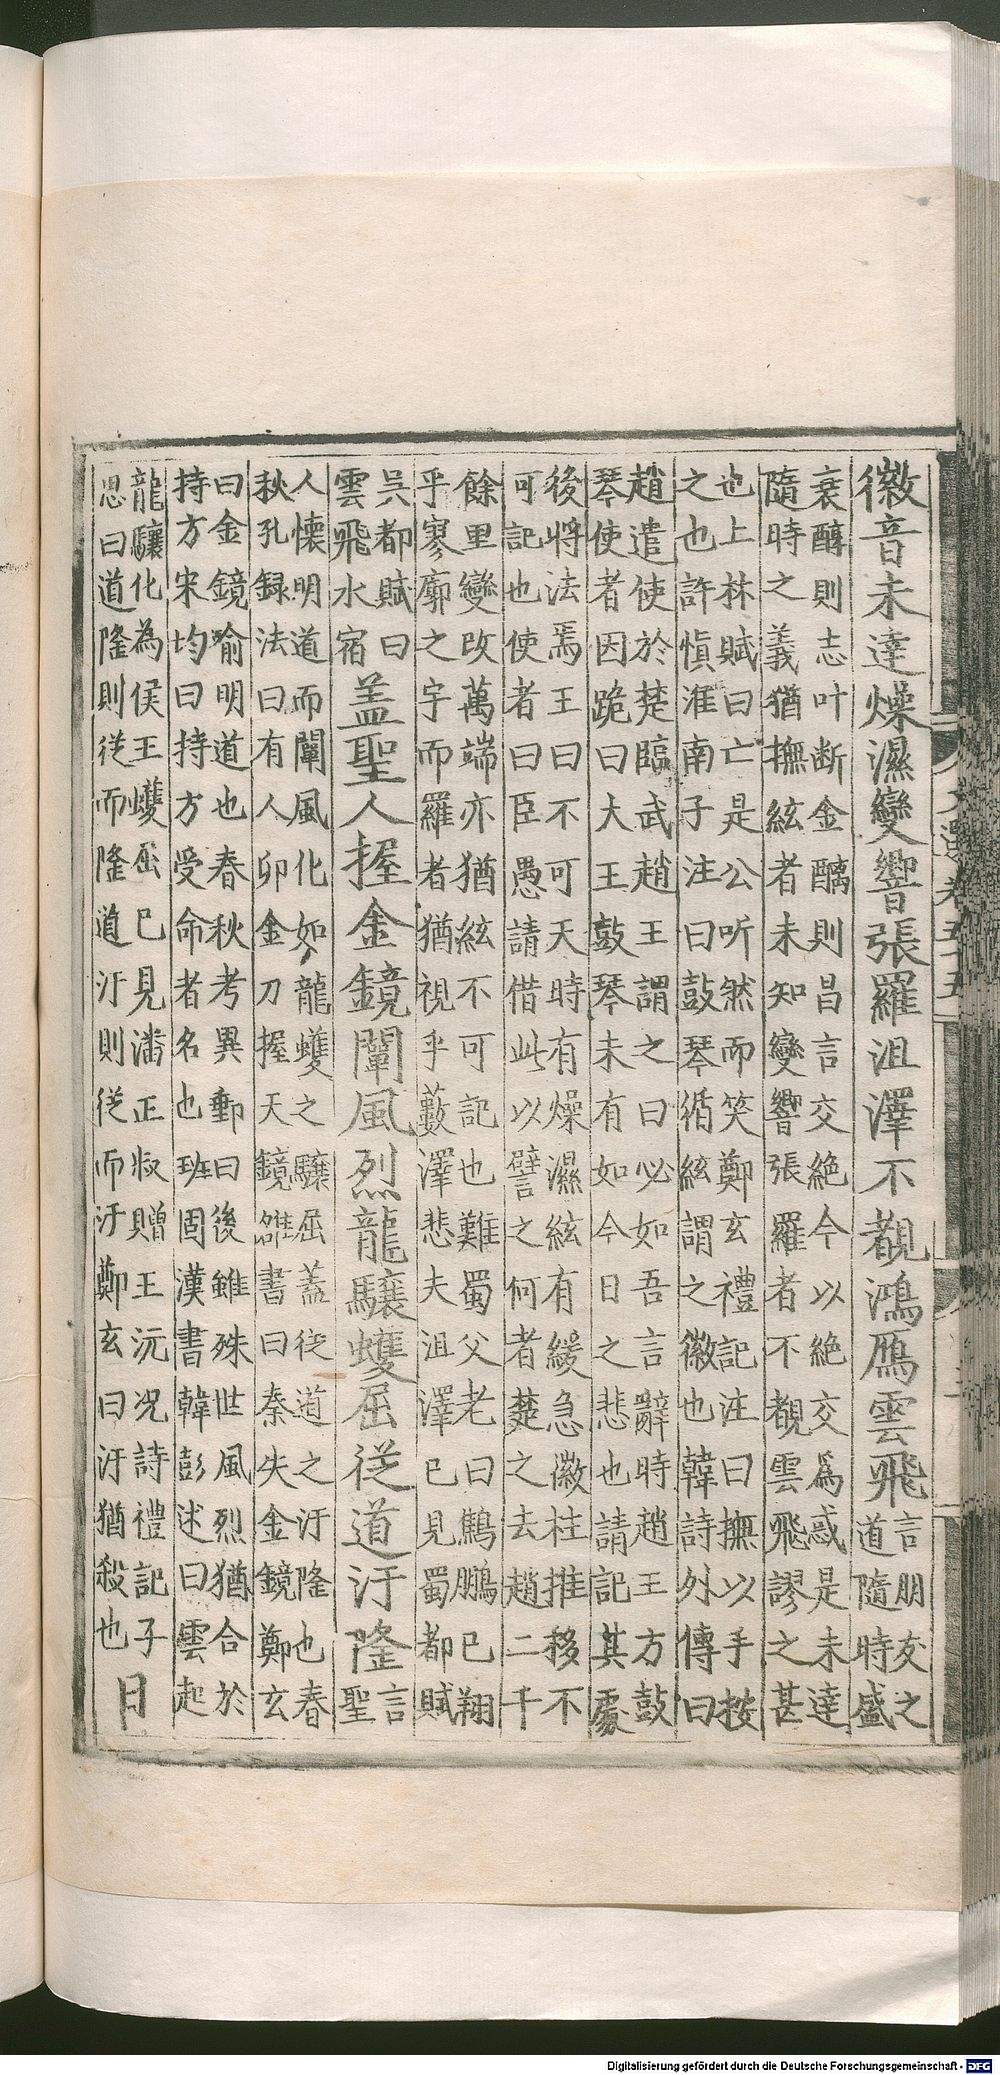 徽音未達燥濕變響張羅沮澤不覩鴻鴈雲飛言朋友之道隨時盛
衰醇則志叶断金醨則昌言交絶今以絶交爲惑是未達
隨時之義猶撫絃者未知變響張羅者不覩雲飛謬之甚
也上林賦曰亡是公听然而笑鄭玄禮記注曰撫以手按
之也許慎淮南子注曰鼓琴循絃謂之徽也韓詩外傳曰
趙遣使於楚臨武趙王謂之曰必如吾言辭時趙王方鼓
琴使者因跪曰大王鼓琴未有如今日之悲也請記其處
後將法焉王曰不可天時有燥濕絃有緩急徽柱推移不
可記也使者曰臣愚請借此以譬之何者楚之去趙二千
餘里變改萬端亦猶絃不可記也難蜀父老曰鷦鵬已翔
乎寥廓之宇而羅者猶視乎藪澤悲夫沮澤已見蜀都賦
吳都賦曰
雲飛水宿
蓋聖人握金鏡闡風烈龍驤蠖屈從道汙隆言聖
人懷明道而闡風化如龍蠖之驤屈蓋從道之汙隆也春
秋孔録法曰有人卯金刀握天鏡雒書曰秦失金鏡鄭玄
曰金鏡喻明道也春秋考異郵曰後雖殊世風烈猶合於
持方宋均曰持方受命者名也班固漢書韓彭述曰雲起
龍驤化為侯王蠖屈已見潘正叔贈王沅況詩禮記子
思曰道隆則從而隆道汙則從而汙鄭玄曰汙猶殺也
日
文選卷五十五
Digitalisierung gefördert durch die Deutsche Forschungsgemeinschaft - DFG